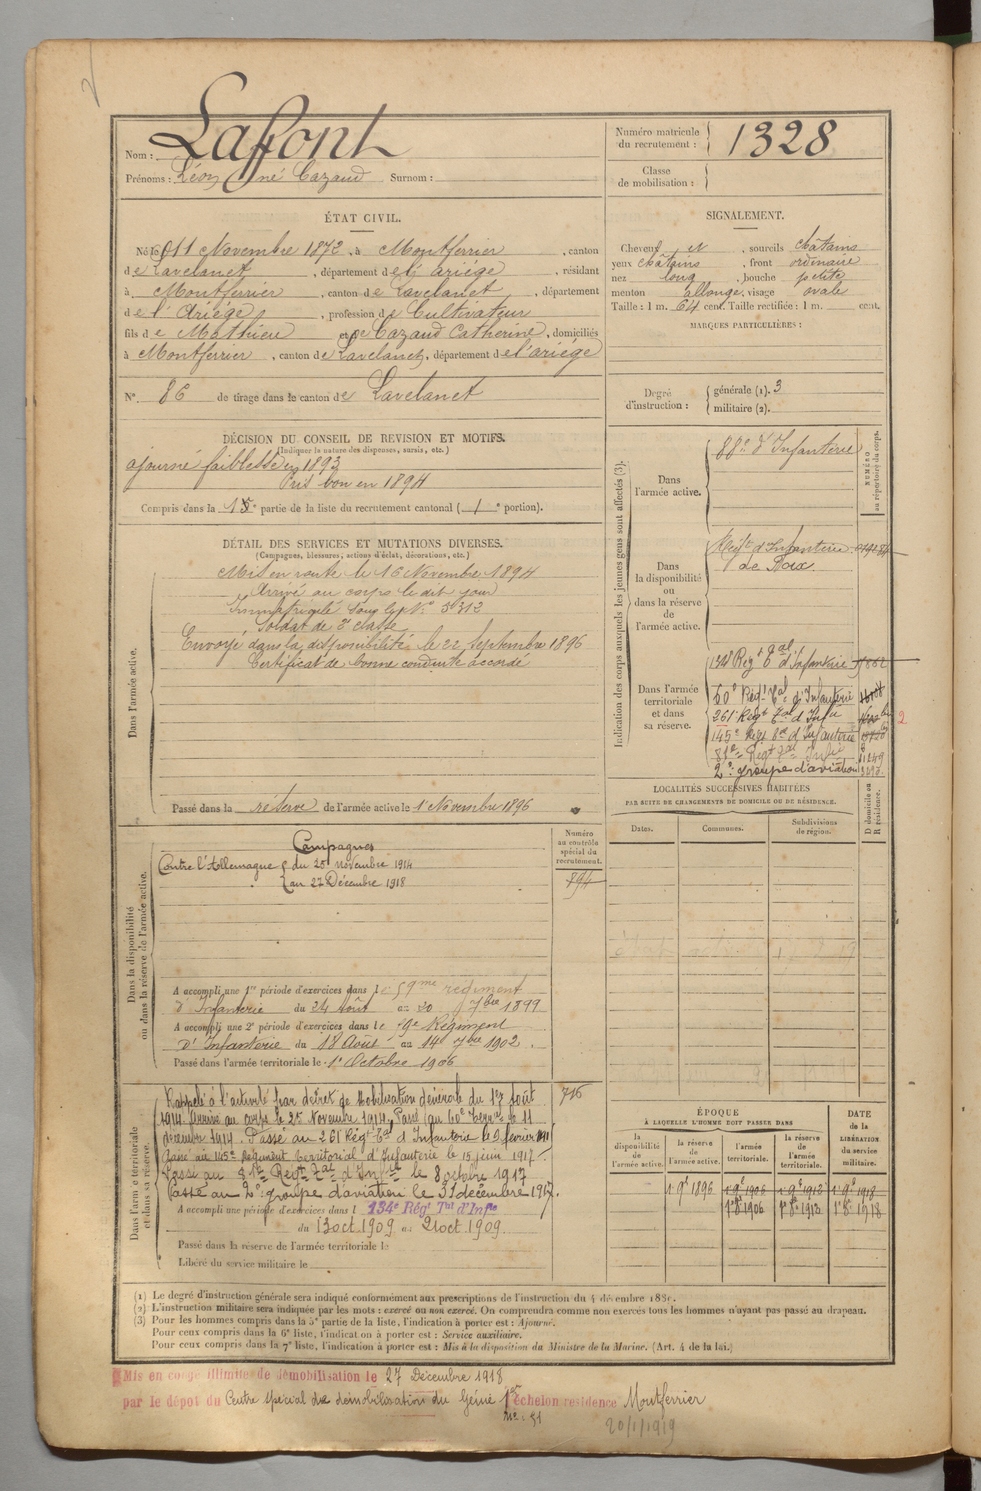 Nom : Laffont
Prénoms : Léon, né Cazaud Surnom :
Numéro matricule du recrutement : 1328
Classe de mobilisation :
ÉTAT CIVIL.
Né le 11 Novembre 1872, à Montferrier, canton
de Lavelanet, département de l'ariége, résidant
à Montferrier, canton de Lavelanet, département
de l'Ariége, profession de Cultivateur
fils de Mathieu et de Cazaud Catherine, domiciliés
à Montferrier, canton de Lavelanet, département de l'ariége
N° 86 de tirage dans le canton de Lavelanet
SIGNALEMENT.
Cheveux et, sourcils châtains
yeux châtains, front ordinaire
nez long, bouche petite
menton allongé, visage ovale
Taille : 1 m. 64 cent. Taille rectifiée : 1 m. cent.
MARQUES PARTICULIÈRES :
Degré d'instruction : générale (1). 3
militaire (2).
DÉCISION DU CONSEIL DE REVISION ET MOTIFS.
(Indiquer la nature des dispenses, sursis, etc.)
ajourné faiblesse en 1893
Pris bon en 1894
Compris dans la 1e partie de la liste du recrutement cantonal (1e portion).
DÉTAIL DES SERVICES ET MUTATIONS DIVERSES.
(Campagnes, blessures, actions d'éclat, décorations, etc.)
Dans l'armée active.
Mis en route le 16 Novembre 1894
Arrivé au corps le dit jour
Immatriculé sous le N° 5312
Soldat de 2e classe
Envoyé dans la disponibilité le 22 Septembre 1896
Certificat de bonne conduite accordé
Passé dans la réserve de l'armée active le 1 Novembre 1896
Indication des corps auxquels les jeunes gens sont affectés (3).
NUMÉRO au répertoire du corps.
Dans l'armée active.
88e d'Infanterie
Dans la disponibilité ou dans la réserve de l'armée active.
Regt d'Infanterie
de Foix
Dans l'armée territoriale et dans sa réserve.
134 Regt tal d'Infanterie
60e Régt tal d'Infanterie
261e Régt tal d'Infie
145e Régt tal d'Infanterie
81e Régt tal Infie 11249
2e groupe d'aviation
2
LOCALITÉS SUCCESSIVES HABITÉES
PAR SUITE DE CHANGEMENTS DE DOMICILE OU DE RÉSIDENCE.
Dates. Communes. Subdivisions de région. D domicile ou R résidence.
Dans la disponibilité ou dans la réserve de l'armée active.
Numéro au contrôle spécial du recrutement.
894
Campagnes
Contre l'Allemagne du 25 novembre 1914
au 27 Décembre 1918
A accompli une 1re période d'exercices dans le 59me régiment
d'Infanterie du 24 Août au 20 7bre 1899
A accompli une 2e période d'exercices dans le 59e Régiment
d'Infanterie du 18 Août au 14 7bre 1902.
Passé dans l'armée territoriale le 1er Octobre 1906
Dans l'armée territoriale et dans sa réserve.
716
Rappelé à l'activité par décret de Mobilisation Générale du 1er août
1914. Arrivé au corps le 25 Novembre 1914. Passé au 60e territ le 11
decembre 1914. Passé au 261 Régt tal d'Infanterie le 9 février
Passé au 145e Régiment territorial d'Infanterie le 15 juin 1917
Passé au 81e Régt tal d'Infie le 8 octobre 1917
Passé au 2e groupe d'aviation le 31 décembre 1917.
A accompli une période d'exercices dans l 134e Régt Tal d'Infie
du 13 oct 1909 au 21 oct 1909.
Passé dans la réserve de l'armée territoriale le
Libéré du service militaire le
ÉPOQUE
À LAQUELLE L'HOMME DOIT PASSER DANS
DATE de la LIBÉRATION DU SERVICE militaire.
la disponibilité de l'armée active. la réserve de l'armée active. l'armée territoriale. la réserve de l'armée territoriale.
1 9e 1896 1 9e 1906 1 9e 1912 1 9e 1918
1er 8e 1906 1er 8e 1912 1er 8e 1918
(1) Le degré d'instruction générale sera indiqué conformément aux prescriptions de l'instruction du 4 décembre 1889.
(2) L'instruction militaire sera indiquée par les mots : exercé ou non exercé. On comprendra comme non exercés tous les hommes n'ayant pas passé au drapeau.
(3) Pour les hommes compris dans la 5e partie de la liste, l'indication à porter est : Ajourné.
Pour ceux compris dans la 6e liste, l'indication à porter est : Service auxiliaire.
Pour ceux compris dans la 7e liste, l'indication à porter est : Mis à la disposition du Ministre de la Marine. (Art. 4 de la loi.)
Mis en congé illimité de démobilisation le 27 Décembre 1918
par le dépot du Centre spécial de démobilisation du Génie 1er échelon, residence Montferrier
20/1/1919